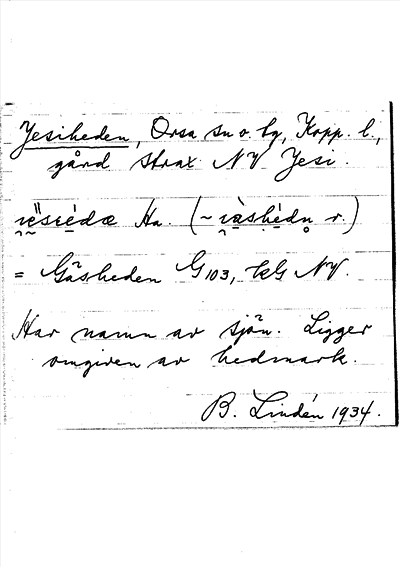 Jesiheden, Orsa sn o. bg, Kopp. l.,
gård strax NV Jesi.
Ha. (~ r.)
= Gäsheden G103, kG NV.
Har namn av sjön. Ligger
omgiven av hedmark.
B. Lindén 1934.